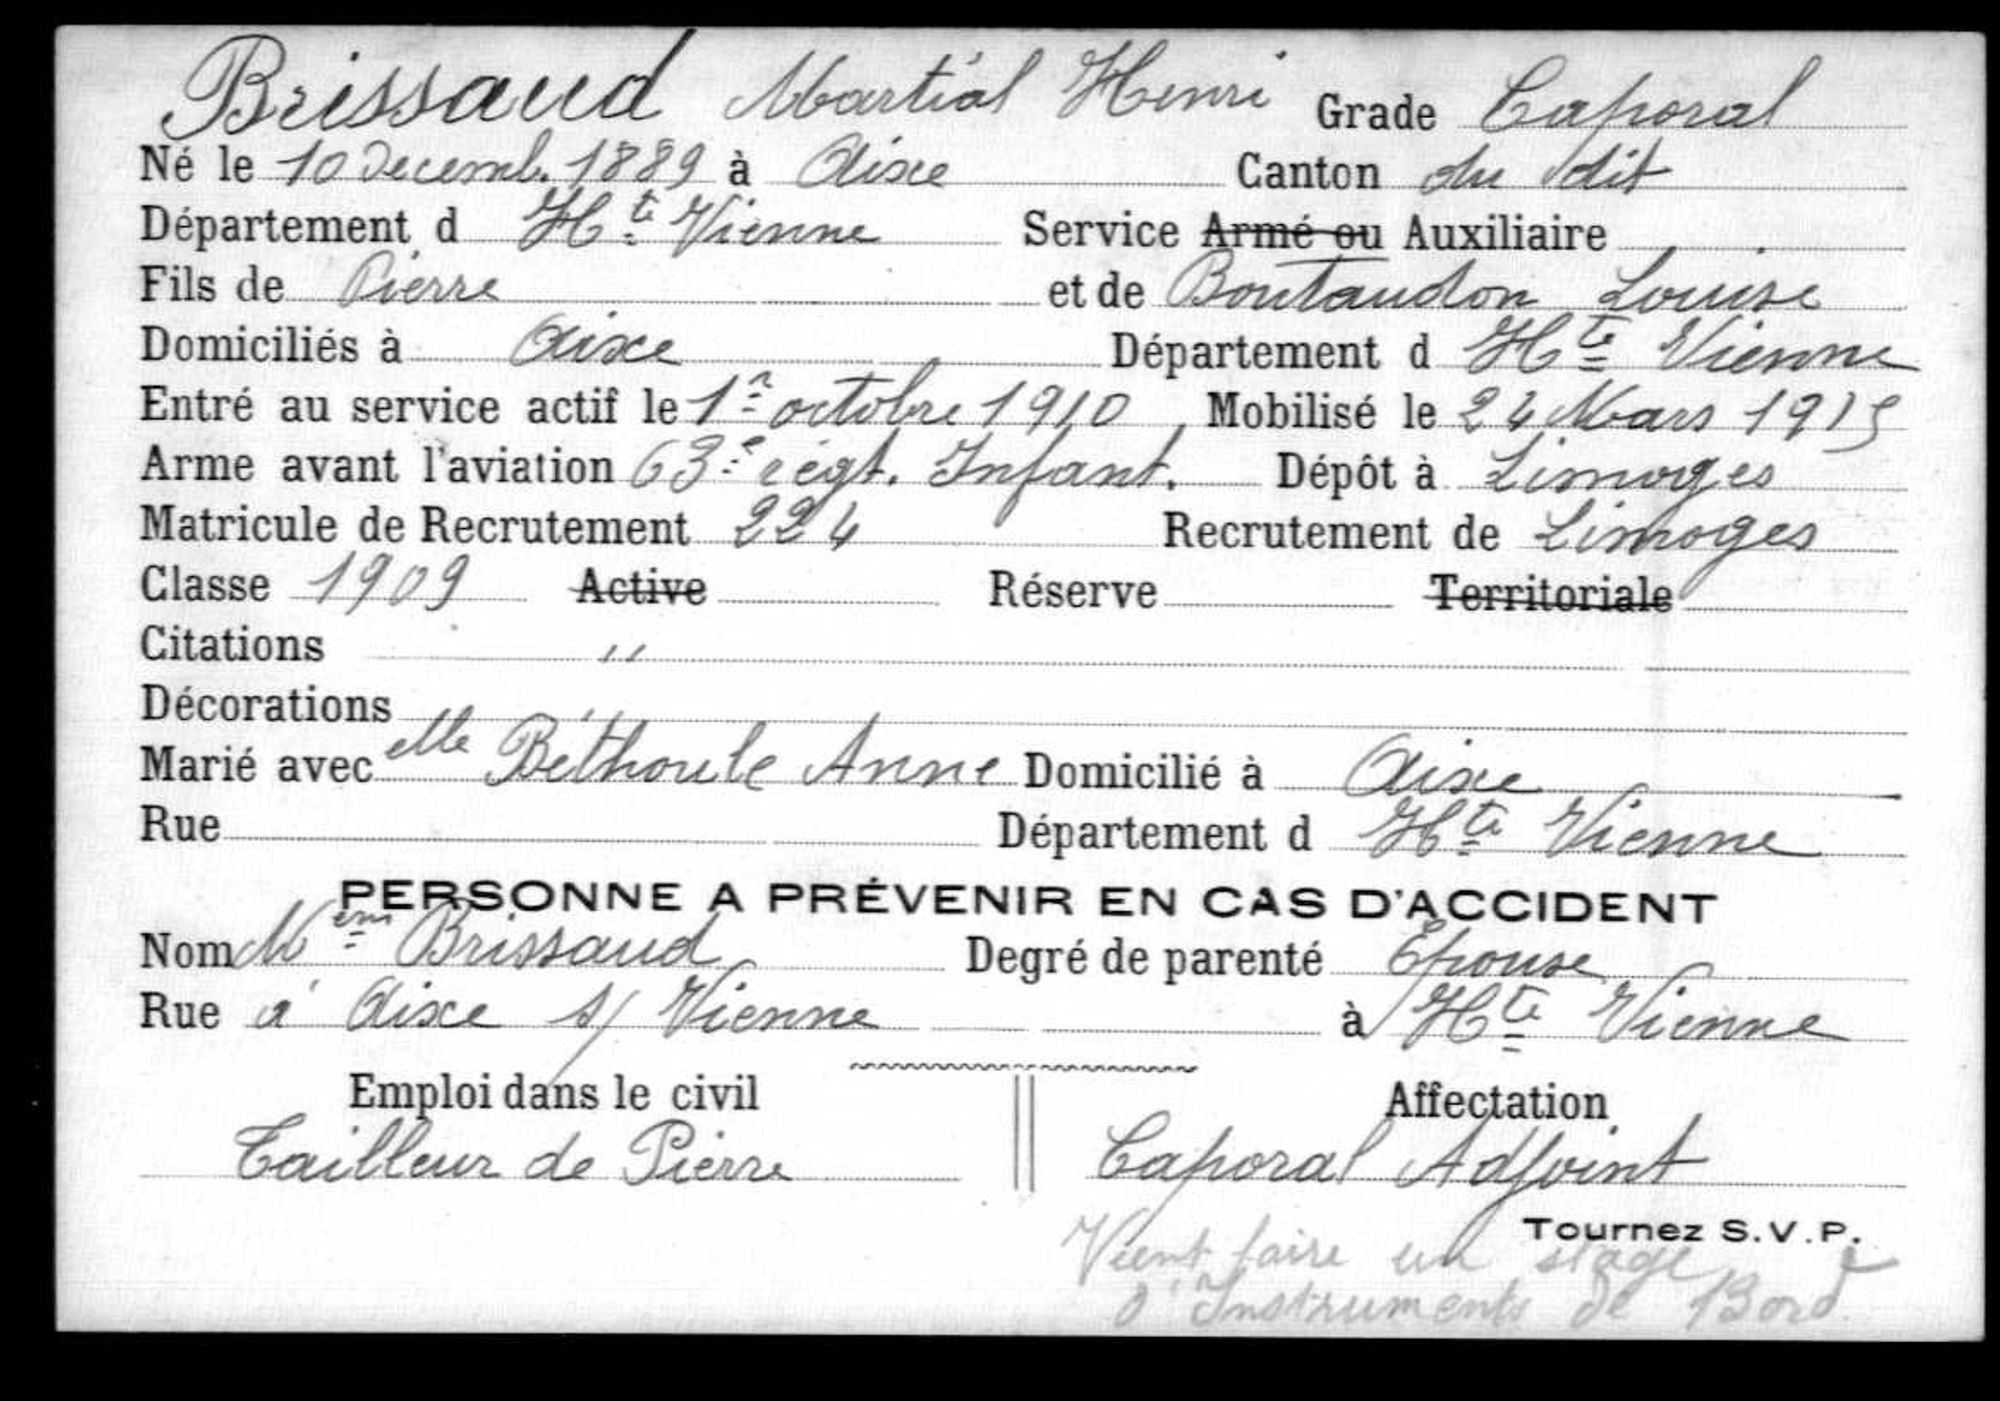 Brissaud Martial Henri Grade Caporal
Né le 10 Decemb. 1889 à Aixe Canton du dit
Département d Hte Vienne Service Armé ou Auxiliaire
Fils de Pierre et de Boutaudon Louise
Domiciliés à Aixe Département d Hte Vienne
Entré au service actif le 1r octobre 1910 Mobilisé le 24 Mars 1915
Arme avant l'aviation 63e régt. Infant. Dépôt à Limoges
Matricule de Recrutement 224 Recrutement de Limoges
Classe 1909 Active Réserve Territoriale
Citations "
Décorations
Marié avec elle Béthoule Anne Domicilié à Aixe
Rue Département d Hte Vienne
PERSONNE A PRÉVENIR EN CAS D'ACCIDENT
Nom Mem Brissaud Degré de parenté Epouse
Rue à Aixe s/ Vienne à Hte Vienne
Emploi dans le civil Affectation
Tailleur de Pierre Caporal Adjoint
Tournez S.V.P.
Vient faire un stage
d'Instruments de Bord